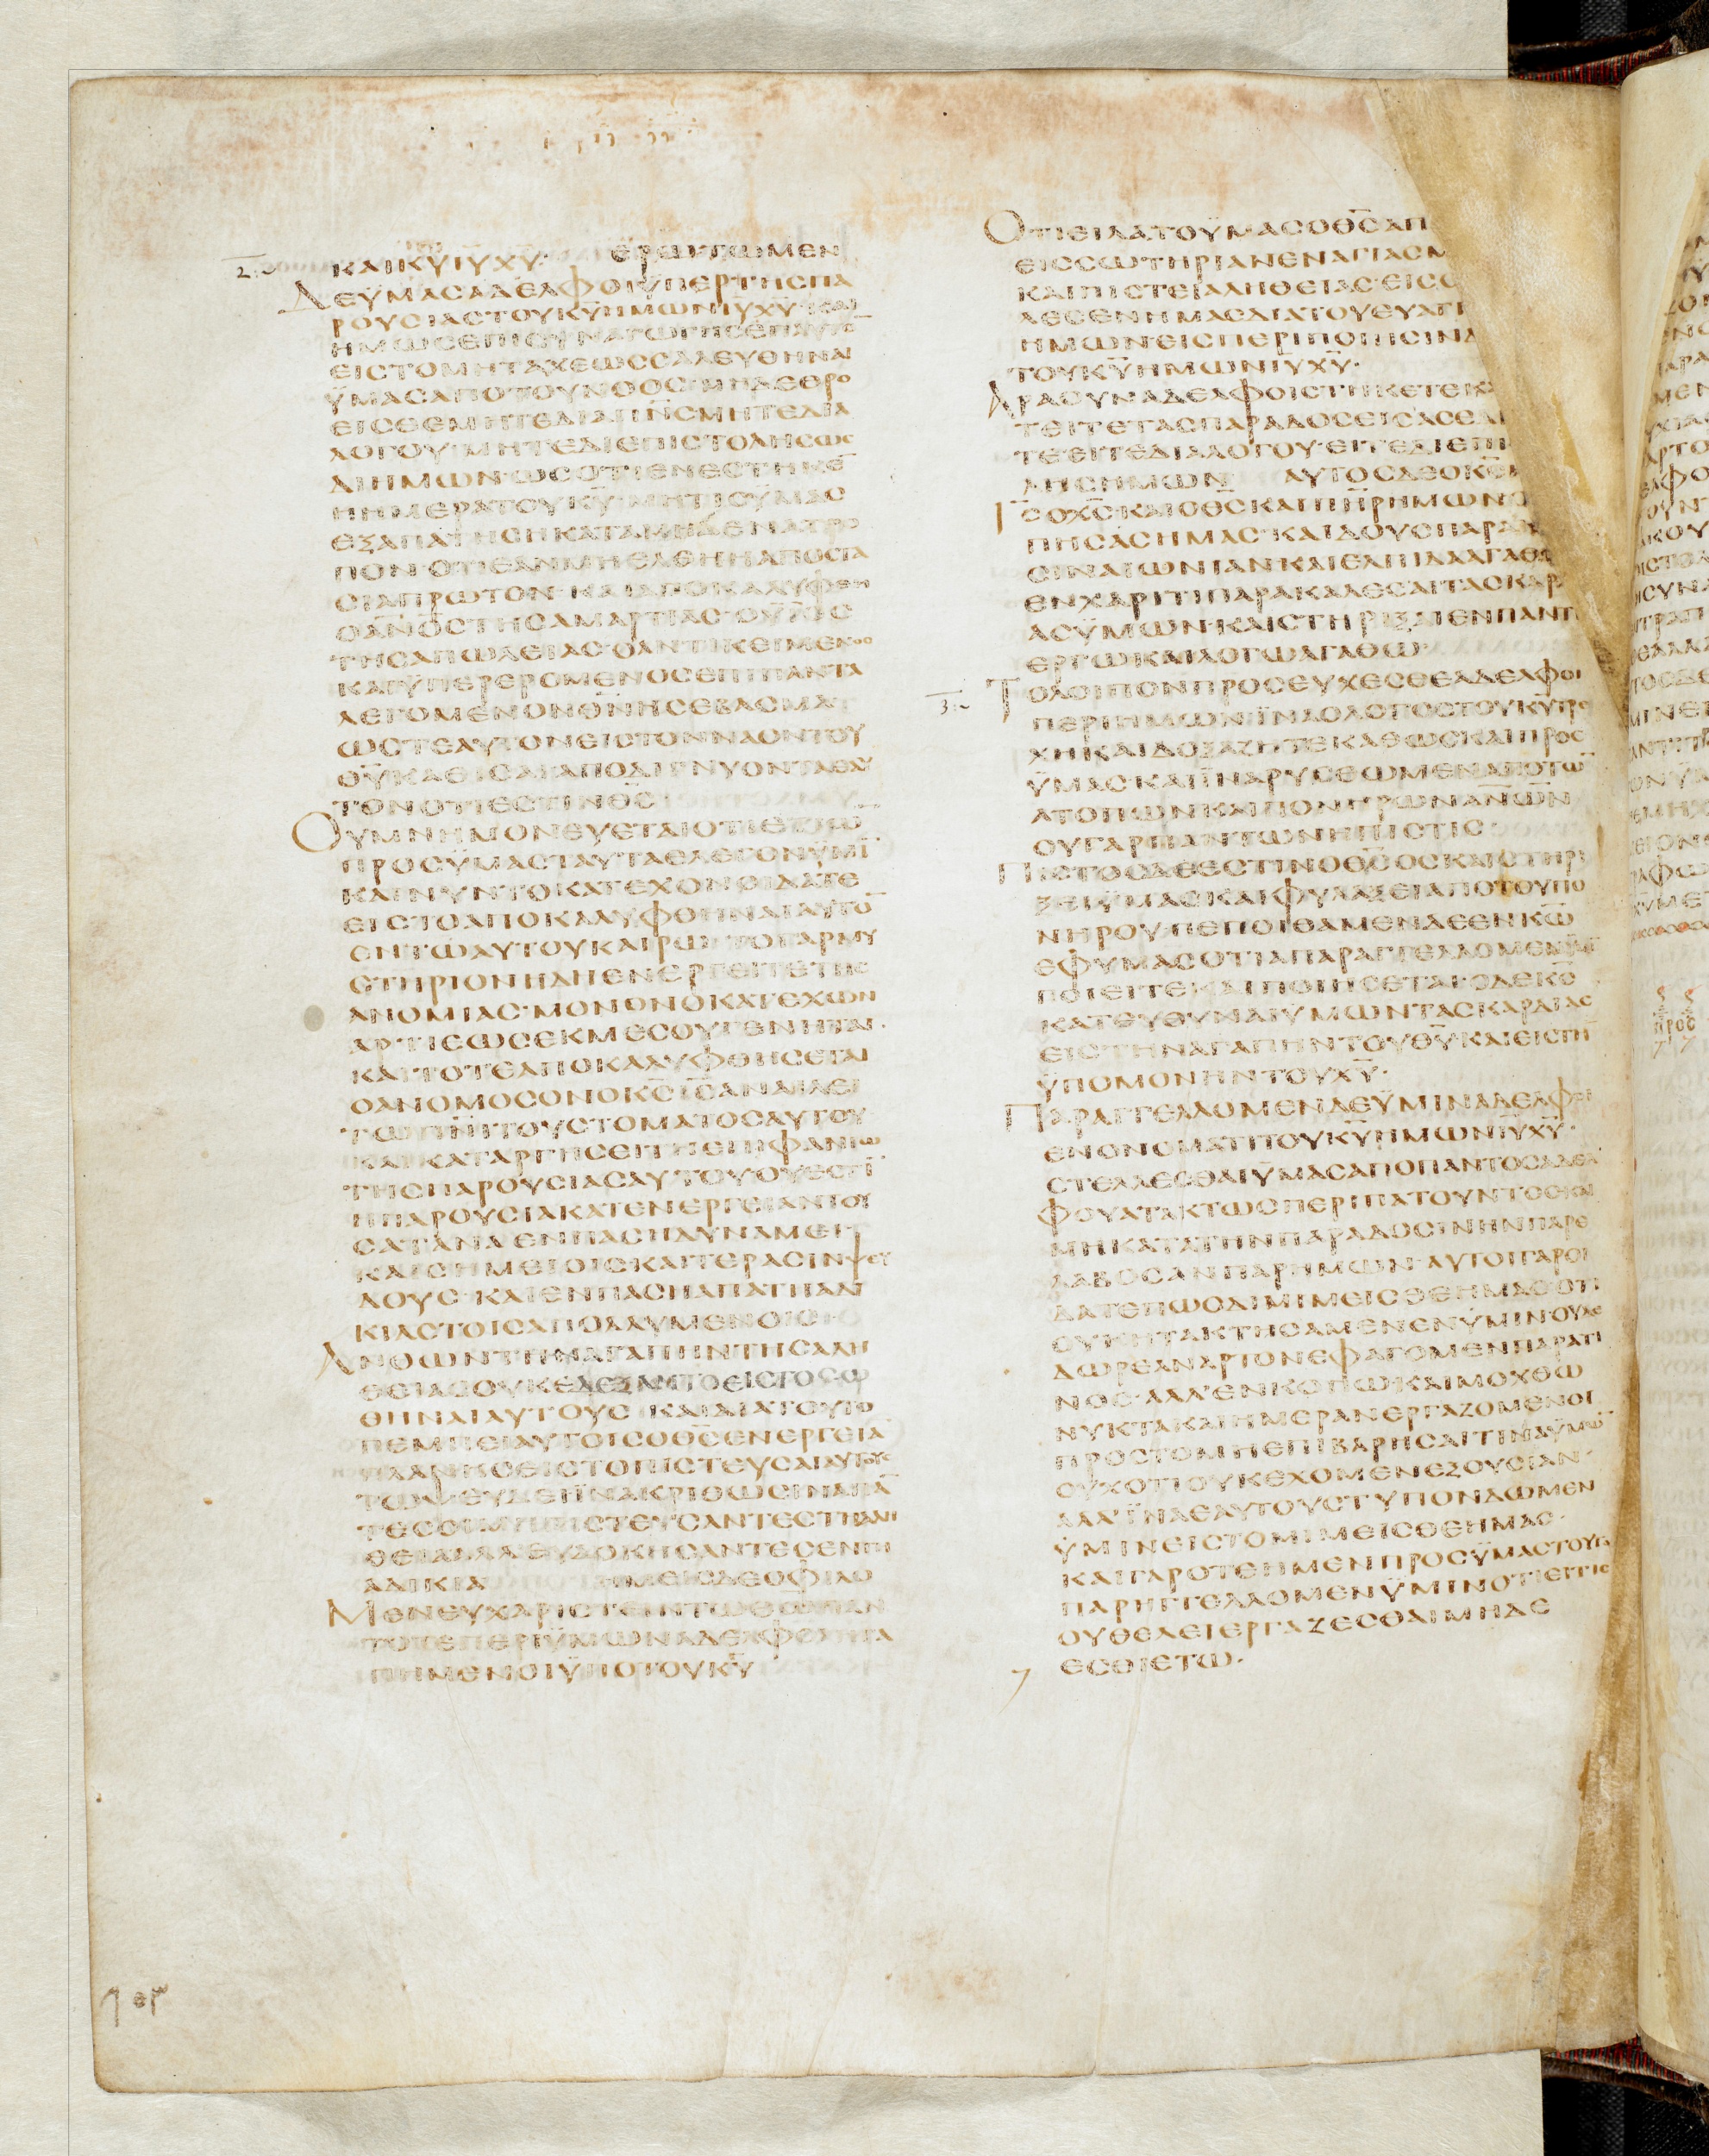 2.
ΚΑΙΚ̅Υ̅Ι̅Υ̅Χ̅Υ̅· ΕΡΩΤΩΜΕΝ
ΔΕΫΜΑΣΑΔΕΛΦΟΙΫΠΕΡΤΗΣΠΑ
ΡΟΥΣΙΑΣΤΟΥΚ̅Υ̅ΗΜΩΝΙ̅Υ̅Χ̅Υ̅·ΚΑΙ
ΗΜΩΣΕΠΙΣΥΝΑΓΩΓΗΣΕΠΑΥΤΟ̅
ΕΙΣΤΟΜΗΤΑΧΕΩΣΣΑΛΕΥΘΗΝΑΙ
ΫΜΑΣΑΠΟΤΟΥΝΟΟΣ·ΜΗΔΕΘΡΟ
ΕΙΣΘΕΜΗΤΕΔΙΑΠ̅Ν̅Σ̅ΜΗΤΕΔΙΑ
ΛΟΓΟΥ·ΜΗΤΕΔΙΕΠΙΣΤΟΛΗΣΩΣ
ΔΙΗΜΩΝ·ΩΣΟΤΙΕΝΕΣΤΗΚΕ̅
ΗΗΜΕΡΑΤΟΥΚ̅Υ̅·ΜΗΤΙΣΫΜΑΣ
ΕΞΑΠΑΤΗΣΗΚΑΤΑΜΗΔΕΝΑΤΡΟ
ΠΟΝ·ΟΤΙΕΑΝΜΗΕΛΘΗΗΑΠΟΣΤΑ
ΣΙΑΠΡΩΤΟΝ·ΚΑΙΑΠΟΚΑΛΥΦΘΗ
ΟΑ̅Ν̅Ο̅Σ̅ΤΗΣΑΜΑΡΤΙΑΣ·ΟΫΪΟΣ
ΤΗΣΑΠΩΛΕΙΑΣ·ΟΑΝΤΙΚΕΙΜΕΝΟΣ
ΚΑΙΫΠΕΡΕΡΟΜΕΝΟΣΕΠΙΠΑΝΤΑ
ΛΕΓΟΜΕΝΟΝΘ̅Ν̅ΗΣΕΒΑΣΜΑ·
ΩΣΤΕΑΥΤΟΝΕΙΣΤΟΝΝΑΟΝΤΟΥ
Θ̅Υ̅ΚΑΘΙΣΑΙΑΠΟΔΙΓΝΥΟΝΤΑΕΑΥ
ΤΟΝΟΤΙΕΣΤΙΝΘ̅Σ̅
ΟΥΜΝΗΜΟΝΕΥΕΤΑΙΟΤΙΕΤΙΩ̅
ΠΡΟΣΫΜΑΣΤΑΥΤΑΕΛΕΓΟΝΫΜΙ̅
ΚΑΙΝΥΝΤΟΚΑΤΕΧΟΝΟΙΔΑΤΕ
ΕΙΣΤΟΑΠΟΚΑΛΥΦΘΗΝΑΙΑΥΤΟ̅
ΕΝΤΩΑΥΤΟΥΚΑΙΡΩ·ΤΟΓΑΡΜΥ
ΣΤΗΡΙΟΝΗΔΗΕΝΕΡΓΕΙΤΕΤΗΣ
ΑΝΟΜΙΑΣ·ΜΟΝΟΝΟΚΑΤΕΧΩΝ
ΑΡΤΙΕΩΣΕΚΜΕΣΟΥΓΕΝΗΤΑΙ·
ΚΑΙΤΟΤΕΑΠΟΚΑΛΥΦΘΗΣΕΤΑΙ
ΟΑΝΟΜΟΣΟΝΟΚ̅Σ̅Ι̅Σ̅ΑΝΑΙΛΕΙ
ΤΩΠ̅Ν̅Ι̅ΤΟΥΣΤΟΜΑΤΟΣΑΥΤΟΥ
ΚΑΙΚΑΤΑΡΓΗΣΕΙΤΗΕΠΙΦΑΝΙΑ
ΤΗΣΠΑΡΟΥΣΙΑΣΑΥΤΟΥΟΥΕΣΤΙ̅
ΗΠΑΡΟΥΣΙΑΚΑΤΕΝΕΡΓΕΙΑΝΤΟΥ
ΣΑΤΑΝΑΕΝΠΑΣΗΔΥΝΑΜΕΙ
ΚΑΙΣΗΜΕΙΟΙΣΚΑΙΤΕΡΑΣΙΝΨΕΥ
ΔΟΥΣ·ΚΑΙΕΝΠΑΣΗΑΠΑΤΗΑΔ
ΚΙΑΣΤΟΙΣΑΠΟΛΛΥΜΕΝΟΙΣ
ΑΝΘΩΝΤΗΝΑΓΑΠΗΝΤΗΣΑΛΗ
ΘΕΙΑΣΟΥΚΕΔΕΞΑΝΤΟΕΙΣΤΟΣΩ
ΘΗΝΑΙΑΥΤΟΥΣ ΚΑΙΔΙΑΤΟΥΤΟ
ΠΕΜΠΕΙΑΥΤΟΙΣΟΘ̅Σ̅ΕΝΕΡΓΕΙΑ̅
ΠΛΑΝΗΣΕΙΣΤΟΠΙΣΤΕΥΣΑΙΑΥΤΟΥΣ
ΤΩΨΕΥΔΕΙΪΝΑΚΡΙΘΩΣΙΝΑΠΑ̅
ΤΕΣΟΙΜΗΠΙΣΤΕΥΣΑΝΤΕΣΤΗΑΛΗ
ΘΕΙΑΑΛΛΑΕΥΔΟΚΗΣΑΝΤΕΣΕΝΤΗ
ΑΔΙΚΙΑ ΗΜΕΙΣΔΕΟΦΙΛΟ
ΜΕΝΕΥΧΑΡΙΣΤΕΙΝΤΩΘ̅Ω̅ΠΑΝ
ΤΟΤΕΠΕΡΙΫΜΩΝΑΔΕΛΦΟΙΗΓΑ
ΠΗΜΕΝΟΙΫΠΟΤΟΥΚ̅Υ̅
ΟΤΙΕΙΛΑΤΟΫΜΑΣΟΘ̅Σ̅ΑΠ
ΕΙΣΣΩΤΗΡΙΑΝΕΝΑΓΙΑΣΜ
ΚΑΙΠΙΣΤΕΙΑΛΗΘΕΙΑΣ·ΕΙΣΟ
ΛΕΣΕΝΗΜΑΣΔΙΑΤΟΥΕΥΑΓΓ
ΗΜΩΝΕΙΣΠΕΡΙΠΟΙΗΣΙΝΔ
ΤΟΥΚ̅Υ̅ΗΜΩΝΙ̅Υ̅Χ̅Υ̅·
ΑΡΑΟΥΝΑΔΕΛΦΟΙΣΤΗΚΕΤΕΚΑ
ΤΕΙΤΕΤΑΣΠΑΡΑΔΟΣΕΙΣΑΣΕΔΙ
ΤΕΕΙΤΕΔΙΑΛΟΓΟΥ·ΕΙΤΕΔΙΕΠΙ
ΛΗΣΗΜΩΝ ΑΥΤΟΣΔΕΟΚ̅Σ̅
Ι̅Σ̅ΟΧ̅Σ̅·ΚΑΙΟΘ̅Σ̅ΚΑΙΠ̅Η̅Ρ̅ΗΜΩΝΟ
ΠΗΣΑΣΗΜΑΣ·ΚΑΙΔΟΥΣΠΑΡΑΚ
ΣΙΝΑΙΩΝΙΑΝΚΑΙΕΛΠΙΔΑΑΓΑΘ
ΕΝΧΑΡΙΤΙΠΑΡΑΚΑΛΕΣΑΙΤΑΣΚΑΡ
ΑΣΫΜΩΝ·ΚΑΙΣΤΗΡΙΞΑΙΕΝΠΑΝΤΙ
ΕΡΓΩΚΑΙΛΟΓΩΑΓΑΘΩ·
3.
ΤΟΛΟΙΠΟΝΠΡΟΣΕΥΧΕΣΘΕΑΔΕΛΦΟΙ
ΠΕΡΙΗΜΩΝΪΝΑΟΛΟΓΟΣΤΟΥΚ̅Υ̅ΤΡΕ
ΧΗΚΑΙΔΟΞΑΖΗΤΕΚΑΘΩΣΚΑΙΠΡΟΣ
ΫΜΑΣ·ΚΑΙΪΝΑΡΥΣΕΩΜΕΝΑΠΟΤΩ̅
ΑΤΟΠΩΝΚΑΙΠΟΝΗΡΩΝΑ̅Ν̅Ω̅Ν̅
ΟΥΓΑΡΠΑΝΤΩΝΗΠΙΣΤΙΣ·
ΠΙΣΤΟΣΔΕΕΣΤΙΝΟΘ̅Σ̅ΟΣΚΑΙΣΤΗΡΙ
ΞΕΙΫΜΑΣΚΑΙΦΥΛΑΞΕΙΑΠΟΤΟΥΠΟ
ΝΗΡΟΥ·ΠΕΠΟΙΘΑΜΕΝΔΕΕΝΚ̅Ω̅
ΕΦΥΜΑΣΟΤΙΑΠΑΡΑΓΓΕΛΛΟΜΕΝΫΜΙ̅
ΠΟΙΕΙΤΕΚΑΙΠΟΙΗΣΕΤΑΙ·ΟΔΕΚ̅Σ̅
ΚΑΤΕΥΘΥΝΑΙΫΜΩΝΤΑΣΚΑΡΔΙΑΣ
ΕΙΣΤΗΝΑΓΑΠΗΝΤΟΥΘ̅Υ̅ΚΑΙΕΙΣΤΗ̅
ΫΠΟΜΟΝΗΝΤΟΥΧ̅Υ̅·
ΠΑΡΑΓΓΕΛΛΟΜΕΝΔΕΫΜΙΝΑΔΕΛΦΟΙ
ΕΝΟΝΟΜΑΤΙΤΟΥΚ̅Υ̅ΗΜΩΝΙ̅Υ̅Χ̅Υ̅·
ΣΤΕΛΛΕΣΘΑΙΫΜΑΣΑΠΟΠΑΝΤΟΣΑΔΕΛ
ΦΟΥΑΤΑΚΤΩΣΠΕΡΙΠΑΤΟΥΝΤΟΣΚΑΙ
ΜΗΚΑΤΑΤΗΝΠΑΡΑΔΟΣΙΝΗΝΠΑΡΕ
ΛΑΒΟΣΑΝΠΑΡΗΜΩΝ·ΑΥΤΟΙΓΑΡΟΙ
ΔΑΤΕΠΩΣΔΙΜΙΜΕΙΣΘΕΗΜΑΣ·ΟΤΙ
ΟΥΚΗΤΑΚΤΗΣΑΜΕΝΕΝΫΜΙΝ·ΟΥΔΕ
ΔΩΡΕΑΝΑΡΤΟΝΕΦΑΓΟΜΕΝΠΑΡΑΤΙ
ΝΟΣ·ΑΛΛΕΝΚΟΠΩΚΑΙΜΟΧΘΩ
ΝΥΚΤΑΚΑΙΗΜΕΡΑΝΕΡΓΑΖΟΜΕΝΟΙ
ΠΡΟΣΤΟΜΗΕΠΙΒΑΡΗΣΑΙΤΙΝΑΫΜΩ̅
ΟΥΧΟΤΙΟΥΚΕΧΟΜΕΝΕΞΟΥΣΙΑΝ·
ΑΛΛΪΝΑΕΑΥΤΟΥΣΤΥΠΟΝΔΩΜΕΝ
ΫΜΙΝΕΙΣΤΟΜΙΜΕΙΣΘΕΗΜΑΣ·
ΚΑΙΓΑΡΟΤΕΗΜΕΝΠΡΟΣΫΜΑΣΤΟΥΤΟ
ΠΑΡΗΓΓΕΛΛΟΜΕΝΫΜΙΝΟΤΙΕΙΤΙΣ
ΟΥΘΕΛΕΙΕΡΓΑΖΕΣΘΑΙΜΗΔΕ
ΕΣΘΙΕΤΩ·